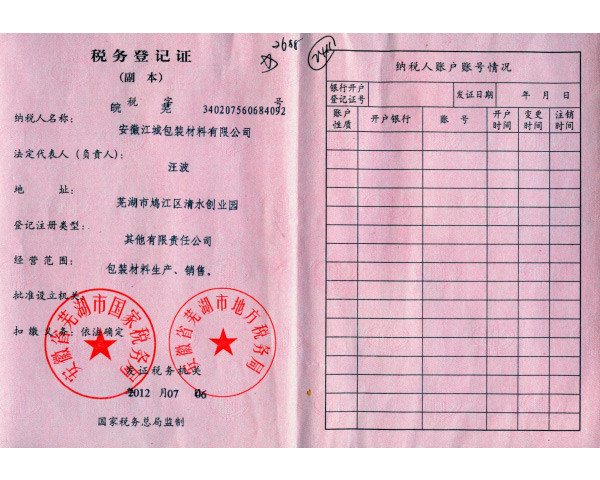 税务登记证
(副 本)
皖 税 芜 字 340207560684092 号
纳税人名称:
安徽江城包装材料有限公司
法定代表人(负责人):
汪波
地 址:
芜湖市鸠江区清水创业园
登记注册类型:
其他有限责任公司
经营范围:
包装材料生产、销售。
批准设立机关:
扣缴义务:依法确定
安徽省芜湖市国家税务局
安徽省芜湖市地方税务局
发证税务机关
2012 月07 06
国家税务总局监制
2688
纳税人账户账号情况
银行开户登记证号
发证日期
年 月 日
账户性质
开户银行
账 号
开户时间
变更时间
注销时间